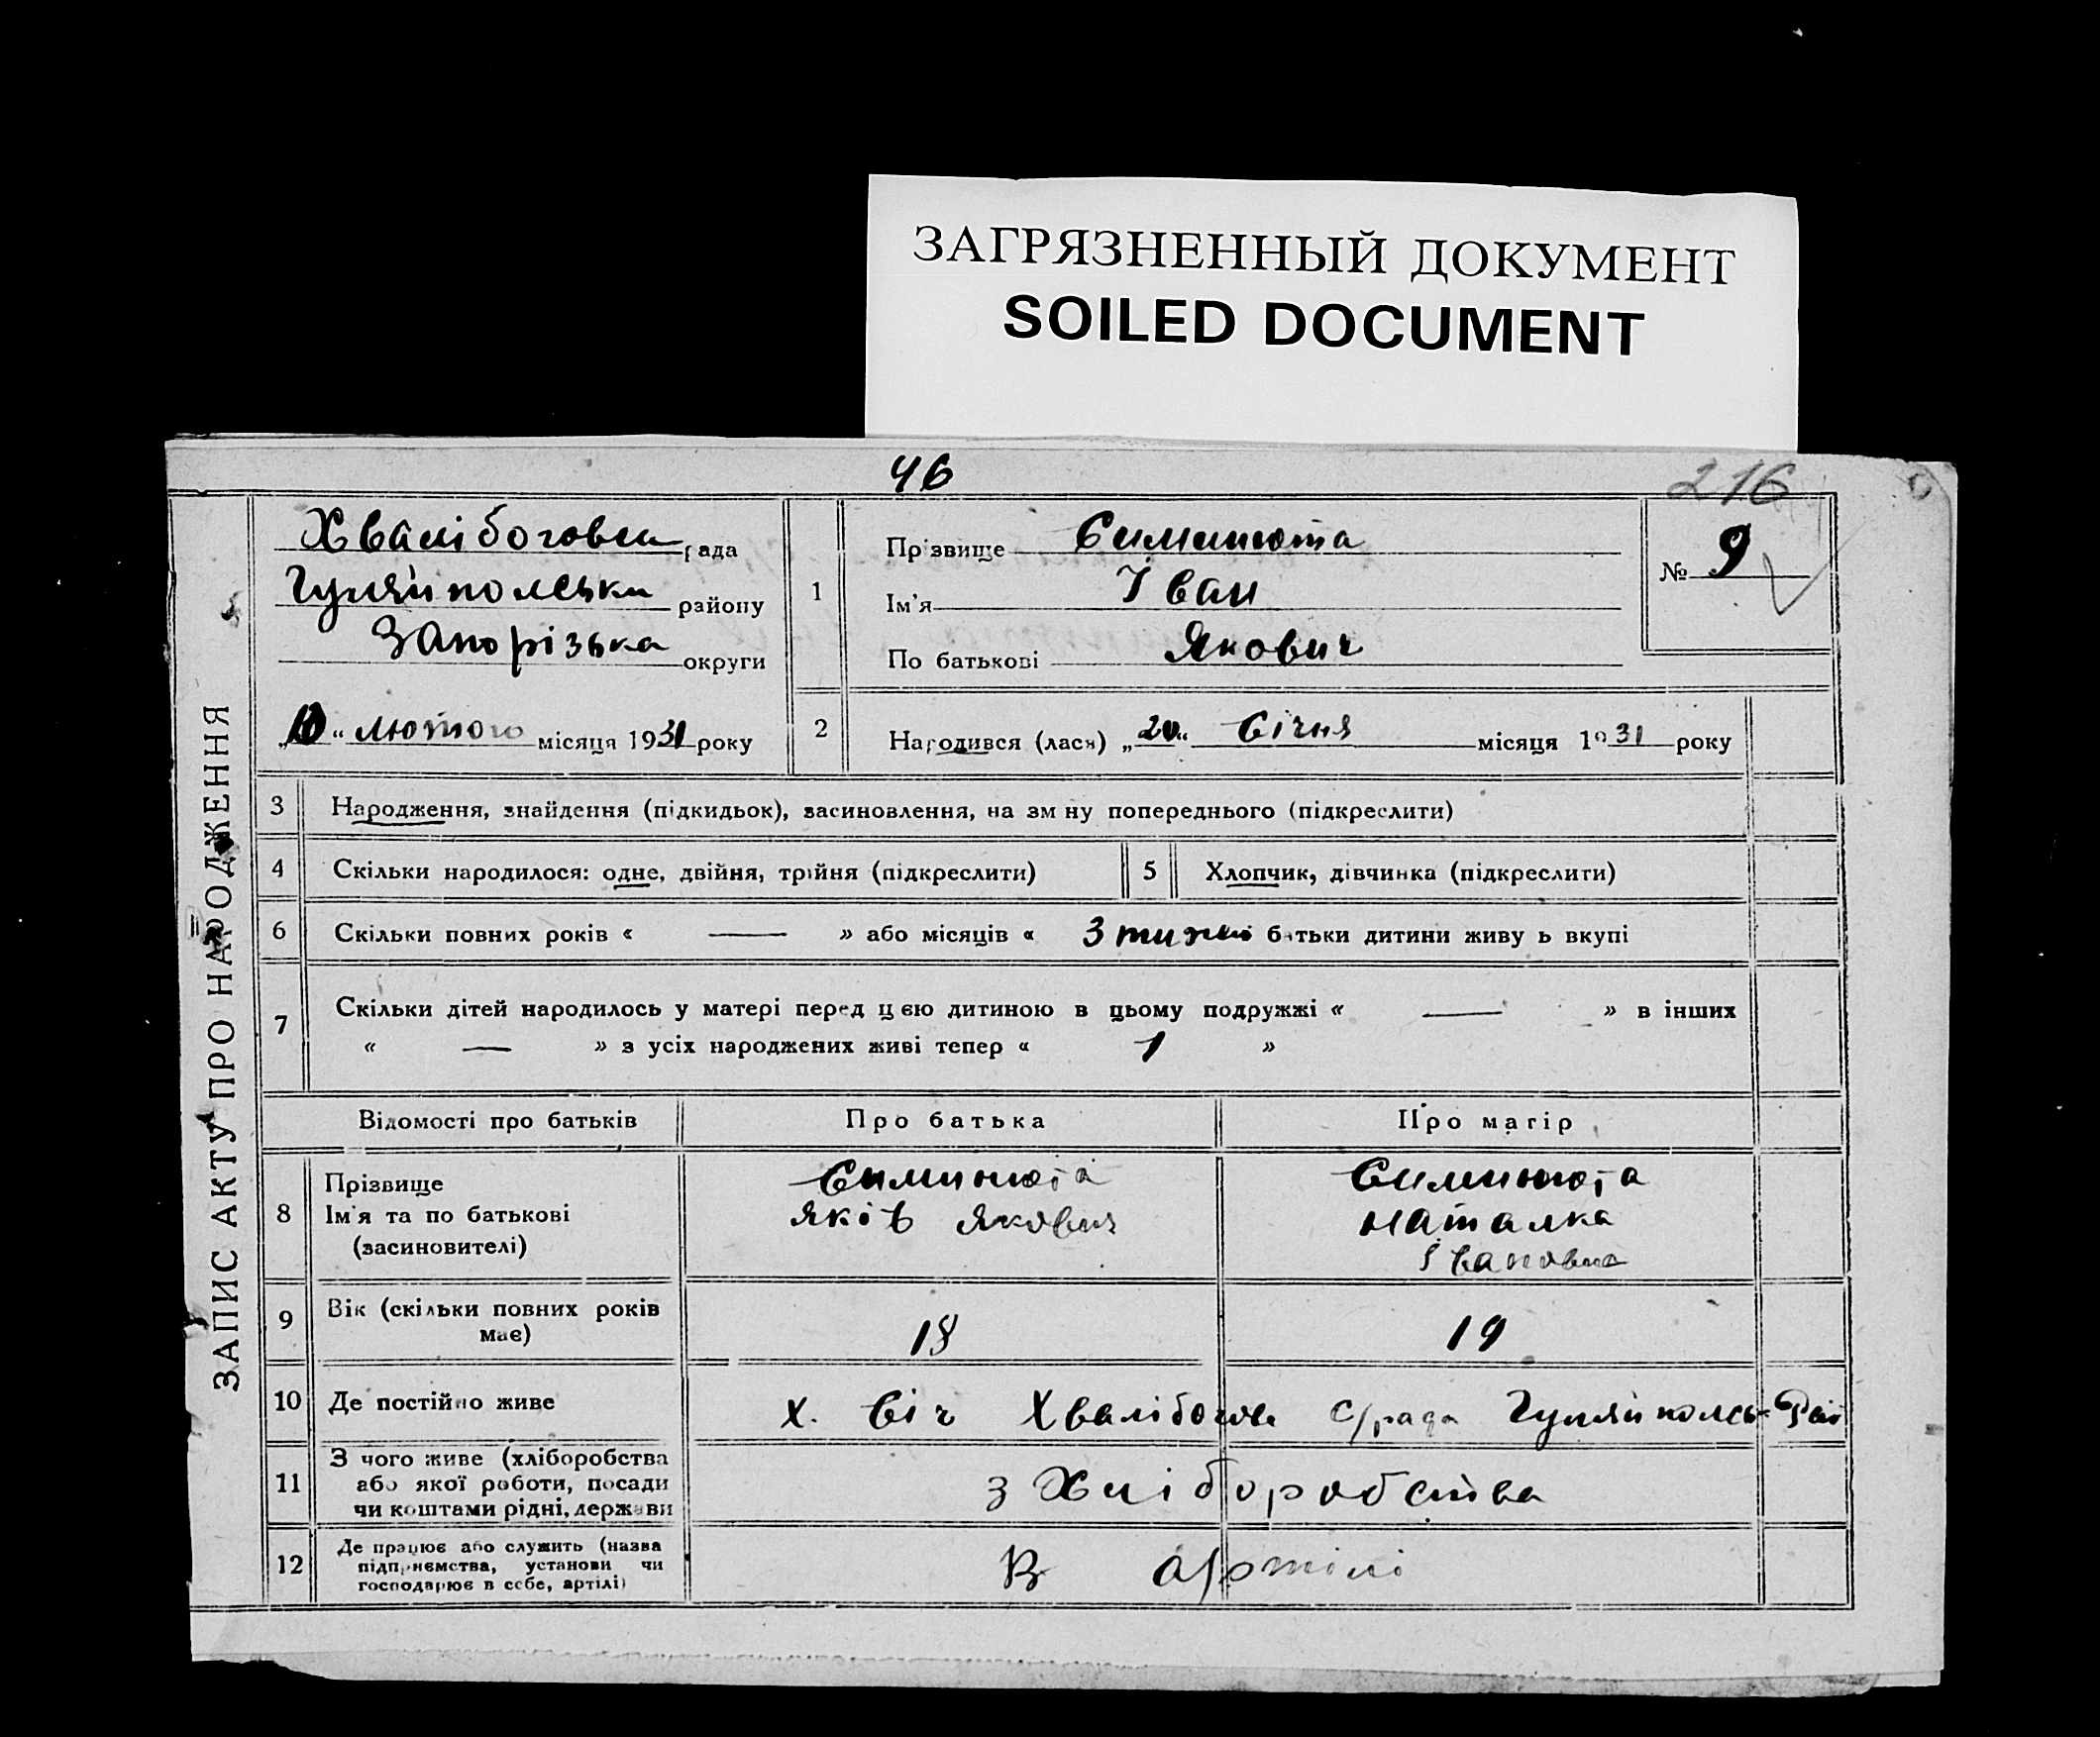 ЗАГРЯЗНЕННЫЙ ДОКУМЕНТ
SOILED DOCUMENT
46
216
ЗАПИС АКТУ ПРО НАРОДЖЕННЯ
Хвалібоговка рада
Гуляйпольськи району
Запорізька округи
„10“ лютого місяця 1931 року
1
Прізвище Симинюта
Ім'я Іван
По батькові Якович
№ 9
2
Народився (лася) „20“ Січня місяця 1931 року
3 Народження, знайдення (підкидьок), засиновлення, на зм ну попереднього (підкреслити)
4 Скільки народилося: одне, двійня, трійня (підкреслити)
5 Хлопчик, дівчинка (підкреслити)
6 Скільки повних років « — » або місяців « 3 тижні батьки дитини живу ь вкупі
7 Скільки дітей народилось у матері перед ц єю дитиною в цьому подружжі « — » в інших
« — » з усіх народжених живі тепер « 1 »
Відомості про батьків Про батька Про матір
8 Прізвище
Ім'я та по батькові
(засиновителі)
Симинюта
Яків Якович
Симинюта
Наталка
Івановна
9 Вік (скільки повних років
має)
18 19
10 Де постійно живе х. Січ Хвалібогов с/рада Гуляйпольсь Рай
11 З чого живе (хліборобства
або якої роботи, посади
чи коштами рідні, держави
з Хліборобства
12 Де працює або служить (назва
підприємства, установи чи
господарює в себе, артілі)
В артілі